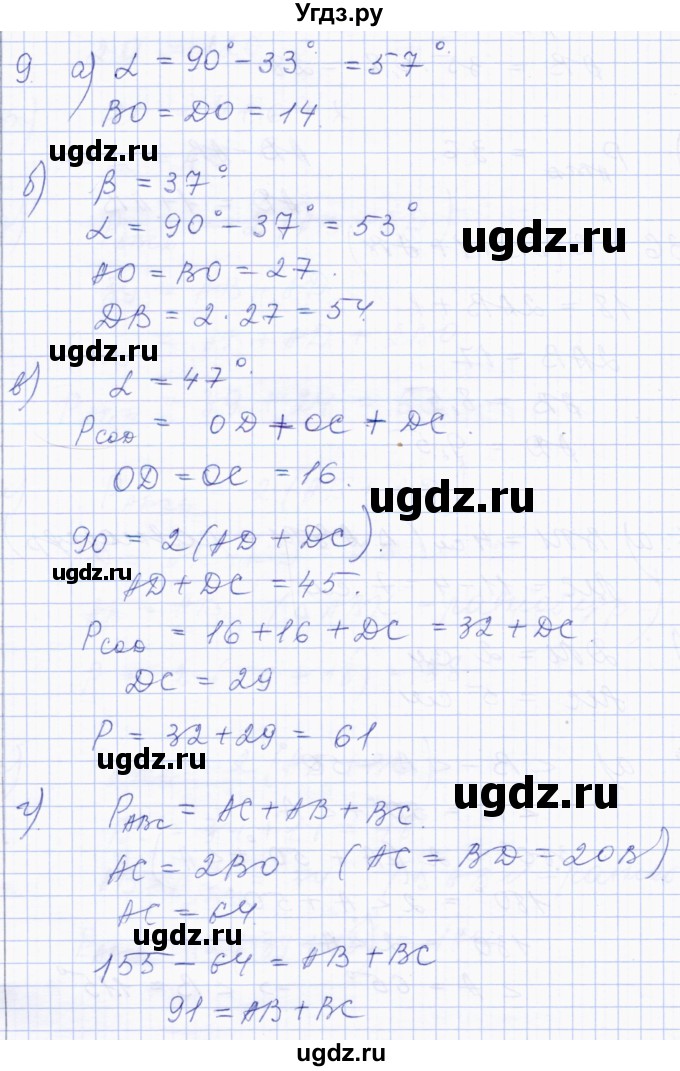 Угдз.ру
9. а) α = 90° - 33° = 57°.
BO = DO = 14.
ugdz.ru
б) β = 37°
ugdz.ru
α = 90° - 37° = 53°
AO = BO = 27.
DB = 2 · 27 = 54.
ugdz.ru
в) α = 47°.
P COD = OD + OC + DC.
OD = OC = 16.
ugdz.ru
90 = 2(AD + DC).
ugdz.ru
AD + DC = 45.
P COD = 16 + 16 + DC = 32 + DC.
DC = 29
P = 32 + 29 = 61
ugdz.ru
ugdz.ru
г) P ABC = AC + AB + BC.
AC = 2BO (AC = BD = 2OB)
AC = 64.
ugdz.ru
155 - 64 = AB + BC
91 = AB + BC
ugdz.ru